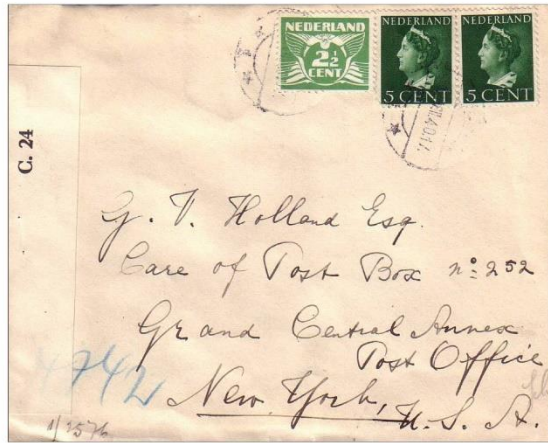 NEDERLAND
2½
CENT
NEDERLAND
5 CENT
NEDERLAND
5 CENT
C. 24
G. V. Holland Esq.
Care of Post Box nº 252
Grand Central Annex
Post Office
New York, U.S.A.
4742